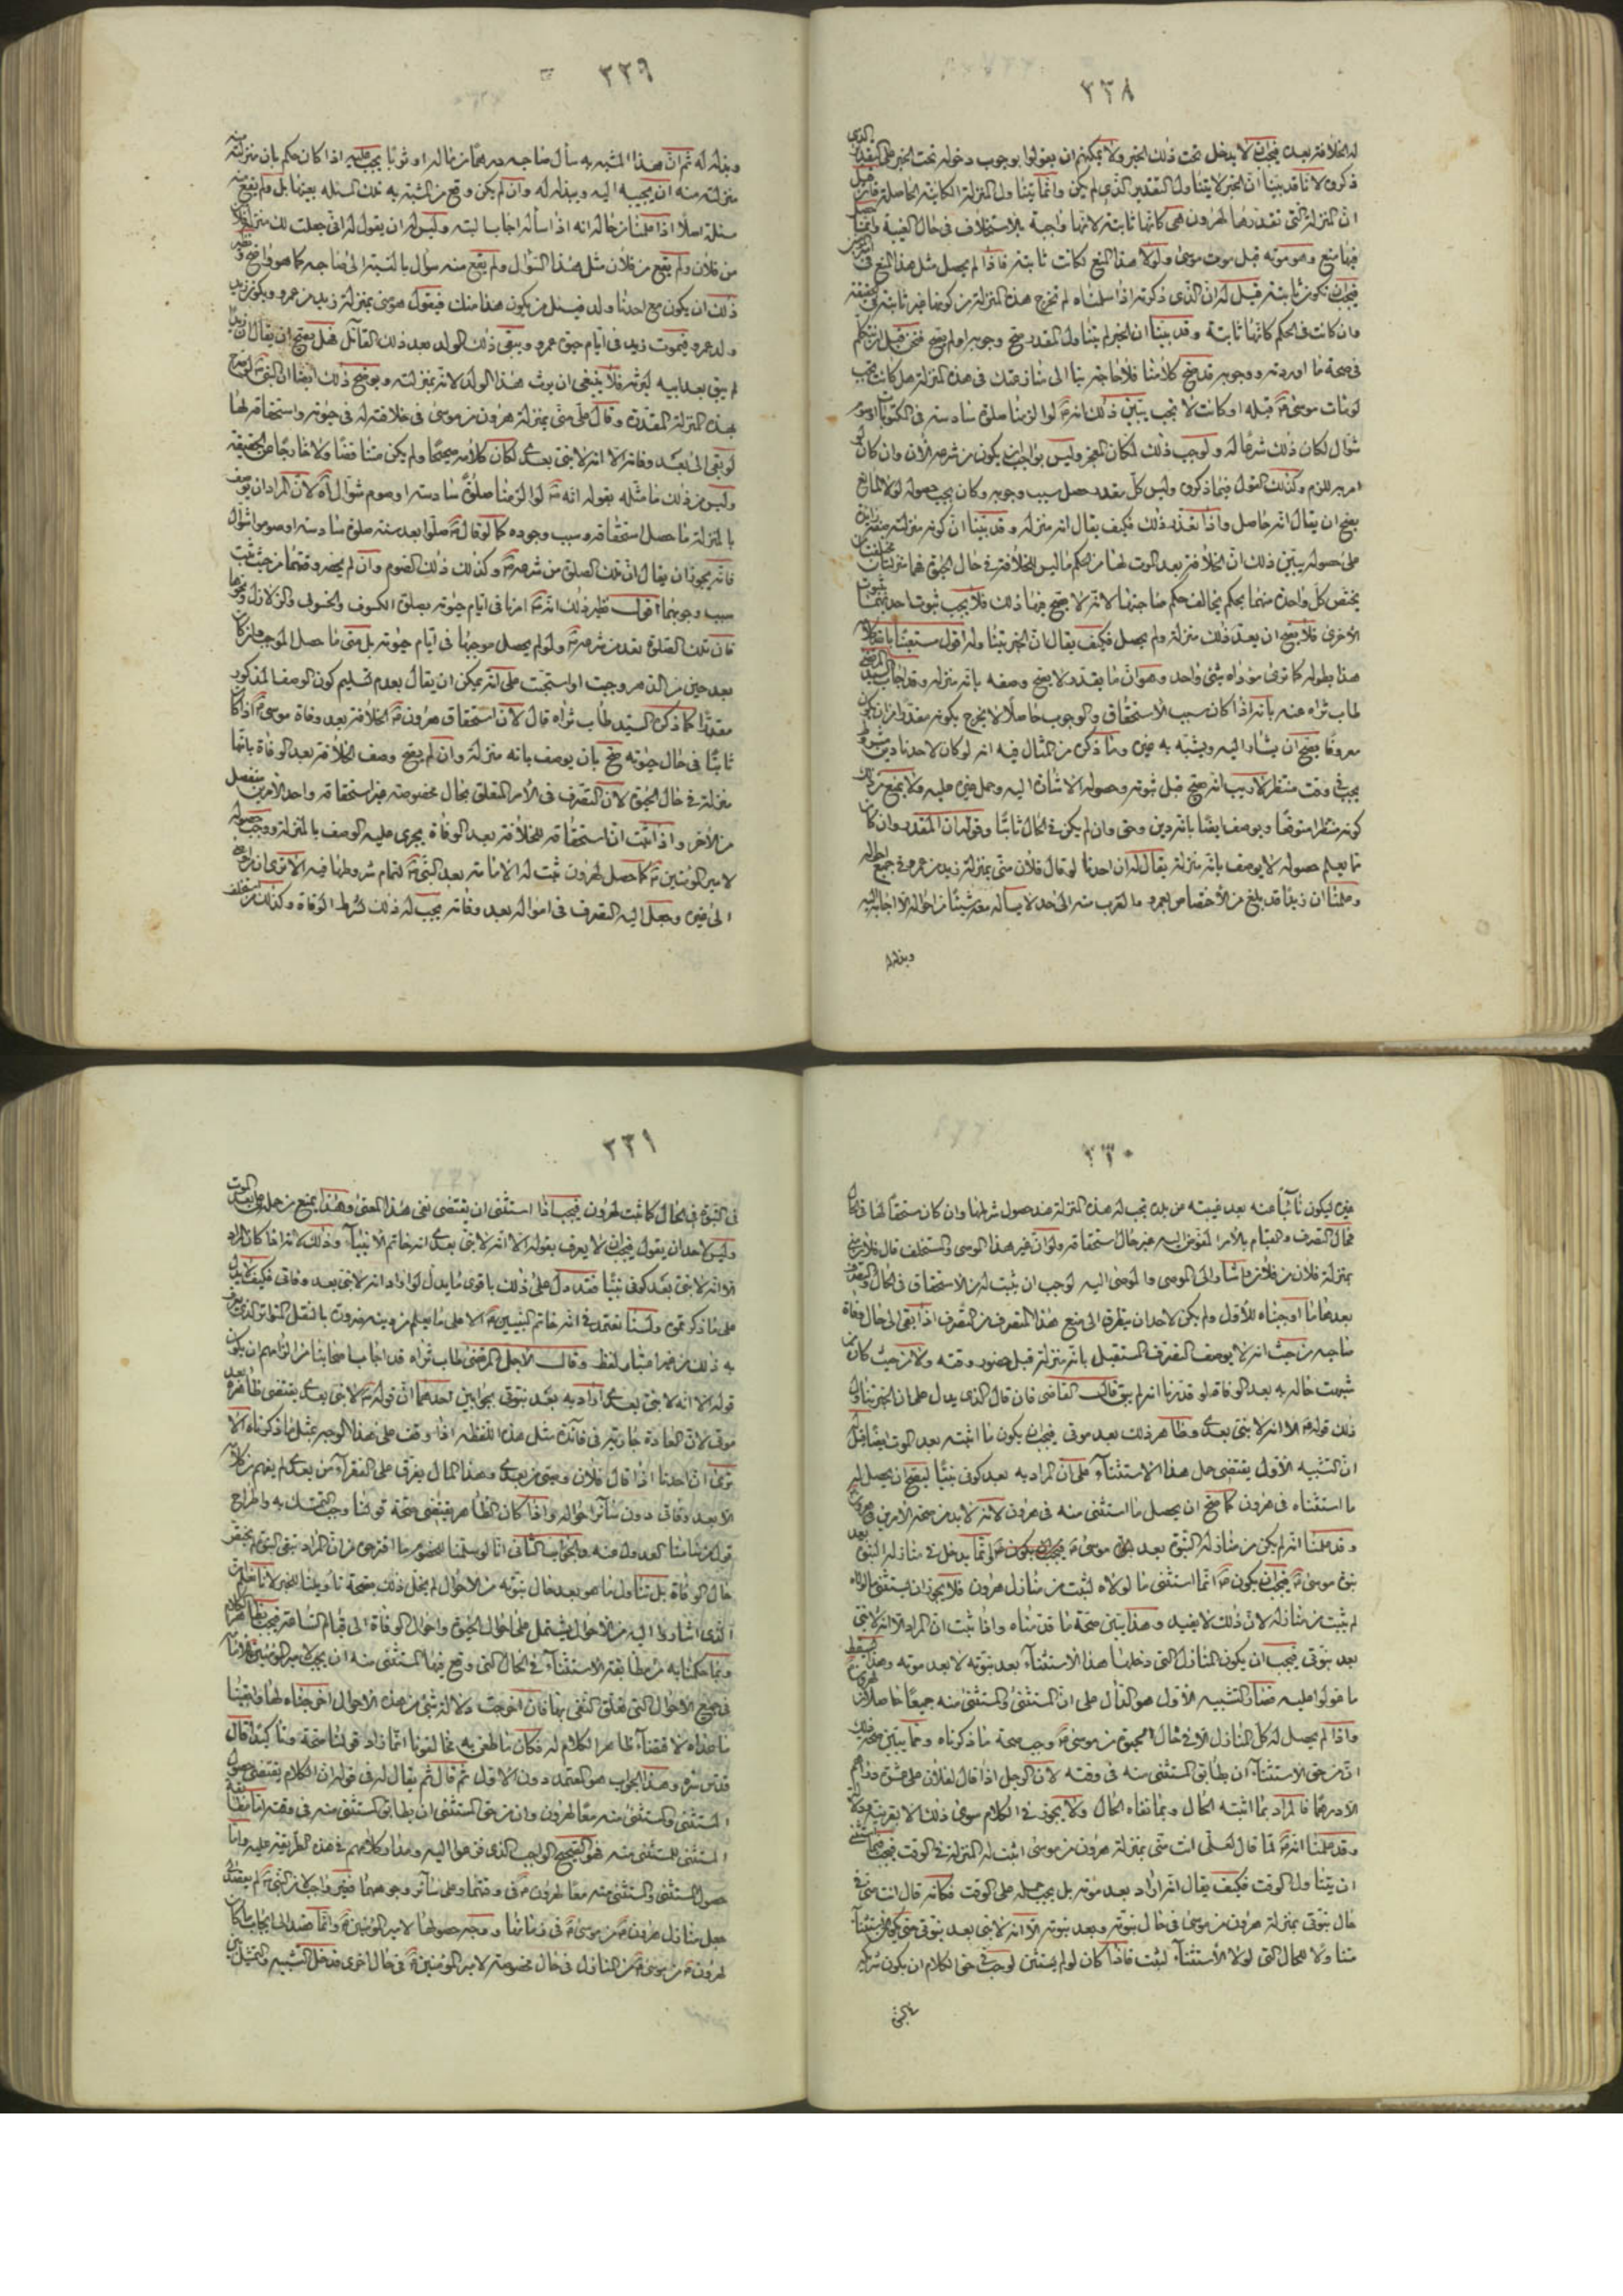 ٣٢٨
له الخلافة بعده فيجب ان لا يدخل تحت ذلك الخبر ولا يمكنهم ان يقولوا بوجوب دخوله تحت الخبر على التقدير الذي
ذكروه لانا قد بينا ان الخبر لا يتناول التقدير الذي لم يكن وانما يتناول المنزلة الكائنة الحاصلة فان قيل
ان المنزلة التي تقدرها لهرون هي كانها ثابتة لانها واجبة بالاستخلاف في حال الغيبة وانما حصل
فيها منع وهو موته قبل موت موسى ولولا هذا المنع لكانت ثابتة فاذا لم يحصل مثل هذا المنع في امير المؤمنين
فيجب ان تكون ثابتة قيل له ان الذي ذكرته اذا سلمناه لم تخرج هذه المنزلة من كونها غير ثابتة في الحقيقة
وان كانت في الحكم كانها ثابتة وقد بينا ان الخبر لم يتناول المقدر صح وجوبه او لم يصح فتى قيل ان يتكلم
في صحة ما اوردته ووجوبه قد صح كلامنا فلا حاجة بنا الى منازعتك في هذه المنزلة هل كانت تجب
لو مات موسى قبله او كانت لا تجب يبين ذلك انه لو الزمنا صلوة سادسة في المكتوبات او صوم
شوال لكان ذلك شرعا له ولوجب ذلك لمكان المعجز وليس بواجب ان يكون من شرعه الآن وان كان لو
امر به للزم وكذلك القول فيما ذكروه وليس كل مقدر حصل سبب وجوبه وكان يجب حصوله لولا المانع
يصح ان يقال انه حاصل واذا تعذر ذلك فكيف يقال انه منزلة وقد بينا ان كونه منزلة يقتضي
على حصوله يبين ذلك ان الخلافة بعد الموت لها من الحكم ما ليس للخلافة في حال الحيوة فهما منزلتان مختلفتان
يختص كل واحدة منهما بحكم يخالف حكم صاحبتها لانه لا يصح فيها ذلك فلا يجب بثبوت احديهما ثبوت
الاخرى فلا يصح ان يعد ذلك منزلة ولم يحصل فكيف يقال ان الخبر يتناوله اقول مستعينا بالله
هذا بطوله كما ترى مؤداه شئ واحد وهو ان ما يقدر لا يصح وصفه بانه منزلة وقد اجاب السيد المرتضى
طاب ثراه عنه بانه اذا كان سبب الاستحقاق والوجوب حاصلا لا يخرج بكونه مقدرا من ان يكون
معروفا يصح ان يشار اليه ويشبه به غيره وما ذكره من المثال فيه انه لو كان لاحدنا دين مشروط
يجب في وقت منتظر لا ريب انه يصح قبل ثبوته وحصوله الاشارة اليه وحمل غيره عليه ولا يمنع من ذلك
كونه منتظرا متوقعا ويوصف ايضا بانه دين وحق وان لم يكن في الحال ثابتا وقوله ان المقدر وان كان
مما يعلم حصوله لا يوصف بانه منزلة يقال له ان احدنا لو قال فلان منى بمنزلة زيد من عمرو في جميع احواله
وعلمنا ان زيدا قد بلغ من الاختصاص بعمرو والقرب منه الى حد لا يسأله معه شيئا من احواله الا اجابه اليه
وبذله له
٣٢٩
وبذله له ثم ان هذا المشبه به سأل صاحبه درهما من ماله او ثوبا يجب عليه اذا كان حكم بان منزلته منه
منزلته منه ان يجيبه اليه ويبذله له وان لم يكن وقع من المشبه به تلك المسئلة بعينها بل ولم يقع منه
مسئلة اصلا اذا علمنا من حاله انه اذا سأله اجابه البتة وليس له ان يقول له انى جعلت لك منزلة فلان
من فلان ولم يقع من فلان مثل هذا السؤال ولم يقع منه سؤال بالنسبة الى صاحبه كما هو واضح ونظير
ذلك ان يكون مع احدنا ولد فيسئل من يكون هذا منك فيقول هو منى بمنزلة زيد من عمرو ويكون زيد
ولد عمرو فيموت زيد في ايام حيوة عمرو ويبقى ذلك الولد بعد ذلك القائل فهل يصح ان يقال ان زيدا
لم يبق بعد ابيه ليرثه فلا ينبغي ان يرث هذا الولد لانه بمنزلته ويوضح ذلك ايضا ان النبي لو صرح
بهذه المنزلة المقدرة وقال على منى بمنزلة هرون من موسى في خلافته له في حيوته واستحقاقه لها
لو بقى الى بعد وفاته الا انه لا نبي بعدى لكان كلامه صحيحا ولم يكن متناقضا ولا خارجا عن الحقيقة
وليس من ذلك ما مثله بقوله انه لو الزمنا صلوة سادسة او صوم شوال اه لان المراد ان يوصف
بالمنزلة ما حصل استحقاقه وسبب وجوده كما لو قال صلوا بعد سنة صلوة سادسة او صوموا شوال
فانه يجوز ان يقال ان تلك الصلوة من شرعه وكذلك ذلك الصوم وان لم يحضر وقتهما من حيث ثبت
سبب وجوبهما اقول نظير ذلك انه امرنا في ايام حيوته بصلوة الكسوف والخسوف والزلازل ونحوها
فان تلك الصلوة تعد من شرعه ولو لم يحصل موجبها في ايام حيوته بل متى ما حصل الموجب ولو كان
بعد حين من الدهر وجبت او استحبت على انه يمكن ان يقال بعدم تسليم كون الوصف المذكور
مقدرا كما ذكره السيد طاب ثراه قال لان استحقاق هرون الخلافة بعد وفاة موسى اذا كان
ثابتا في حال حيوته صح بان يوصف بانه منزلة وان لم يصح وصف الخلافة بعد الوفاة بانها
منزلة في حال الحيوة لان التصرف في الامر المتعلق بحال مخصوصة غير استحقاقه واحد الامرين منفصل
من الآخر واذا ثبت ان استحقاقه للخلافة بعد الوفاة يجري عليه الوصف بالمنزلة ووجب حصوله
لامير المؤمنين كما حصل لهرون ثبت له الامامة بعد النبي لتمام شروطها فيه الا ترى ان من اوصى
الى غيره وجعل اليه التصرف في امواله بعد وفاته يجب له ذلك بشرط الوفاة وكذلك من استخلف
٣٣٠
غيره ليكون نائبا عنه بعد غيبته عن بلده يجب له هذه المنزلة عند حصول شرطها وان كان مستحقا لها في الحال
فحال التصرف والقيام بالامر المفوض اليه غير حال استحقاقه ولو ان غير هذا الموصى والمستخلف قال فلان منى
بمنزلة فلان من فلان واشار الى الموصى والموصى اليه لوجب ان يثبت له من الاستحقاق في الحال والتصرف
بعدها ما اوجبناه للاول ولم يكن لاحد ان يتطرق الى منع هذا المتصرف من التصرف اذا بقى الى حال وفاة
صاحبه من حيث انه لا يوصف التصرف المستقبل بانه منزلة قبل حضور وقته ولا من حيث كان من
شبهت حاله به بعد الوفاة لو قدرنا انه لم يبق قال القاضي فان قال الذي يدل على ان الخبر يتناول
ذلك قوله الا انه لا نبي بعدى وظاهر ذلك بعد موتى فيجب ان يكون ما اثبته بعد الموت ايضا قيل له
ان التشبيه الاول يقتضى حمل هذا الاستثناء على ان المراد به بعد كونى نبيا ليصح ان يحصل له
ما استثناه في هرون كما صح ان يحصل ما استثنى منه في هرون لانه لا بد من صحة الامرين في هرون
وقد علمنا انه لم يكن من منازله النبوة بعد موسى انما يدخل في منازله النبوة بعد
نبوة موسى فيجب ان يكون انما استثنى ما لولاه لثبت من منازل هرون فلا يجوز ان يستثنى ما لولاه
لم يثبت من منازله لان ذلك لا يفيد وهذا يبين صحة ما قدمناه واذا ثبت ان المراد الا انه لا نبي
بعد نبوتى فيجب ان يكون المنازل التى دخلها هذا الاستثناء بعد نبوته لا بعد موته وهذا يسقط
ما عولوا عليه فصار التشبيه الاول هو الدال على ان المستثنى والمستثنى منه جميعا حاصلان لهرون
واذا لم يحصل له كل المنازل الا في حال الحيوة من موسى وجب صحة ما ذكرناه ومما يبين صحة ذلك
ان من حق الاستثناء ان يطابق المستثنى منه في وقته لان الرجل اذا قال لفلان على عشرة دراهم
الا درهما فالمراد بما اثبته الحال وبما نفاه الحال ولا يجوز في الكلام سوى ذلك الا بقرينة ودلالة
وقد علمنا انه لما قال لعلى انت منى بمنزلة هرون من موسى اثبت له المنزلة في الوقت فيجب فيما استثنى
ان يتناول الوقت فكيف يقال انه اراد بعد موته بل يجب حمله على الوقت فكانه قال انت منى في
حال نبوتى بمنزلة هرون من موسى في حال نبوته وبعد نبوته الا انه لا نبي بعد نبوتى حتى يكون الاستثناء
متناولا للحال التى لولا الاستثناء لثبت فاذا كان لو لم يستثن لوجب في حق الكلام ان يكون شريكه
في النبوة
٣٣١
في النبوة في الحال كما ثبت لهرون فيجب اذا استثنى ان يقتضى نفى هذا المعنى وهذا يمنع من حمله على بعد الموت
وليس لاحد ان يقول فيجب ان لا يعرف بقوله الا انه لا نبي بعدى انه خاتم الانبياء وذلك لانه اذا كان المراد
الا انه لا نبي بعد كونى نبيا فقد دل على ذلك باقوى مما يدل لو اراد انه لا نبي بعد وفاتى فكيف لا يدل
على ما ذكرتموه ولسنا نعتمد في انه خاتم النبيين الا على ما يعلم من دينه ضرورة بالنقل المتواتر الذي يعرف
به ذلك من غير اعتبار لفظ وقال الاجل المرتضى طاب ثراه قد اجاب اصحابنا من الزامهم ان يكون
قوله الا انه لا نبي بعدى اراد به بعد نبوتى بجوابين احدهما ان قوله لا نبي بعدى يقتضى ظاهره بعد
موتى لان العادة جارية في فائدة مثل هذه اللفظة اذا وقعت على هذا الوجه بمثل ما ذكرناه الا
ترى ان احدنا اذا قال فلان وصيي من بعدى وهذا المال يفرق على الفقراء من بعدى لم يفهم من كلامه
الا بعد وفاتى دون سائر احواله واذا كان الظاهر يقتضى صحة قولنا وجب التمسك به واطراح
قول من سامنا العدول عنه والجواب الثاني انا لو سلمنا للخصوم ما اقترحوه من ان المراد بنفى النبوة لم يختص
حال الوفاة بل تناول ما هو بعد حال نبوته من الاحوال لم يخل ذلك بصحة تأويلنا للخبر لانا نعلم ان
الذي اشاروا اليه من الاحوال يشتمل على احوال الحيوة واحوال الوفاة الى قيام الساعة فيجب بظاهر الكلام
وبما حكمنا به من مطابقة الاستثناء في الحال التى وقع فيها المستثنى منه ان يجب لامير المؤمنين الامامة
في جميع الاحوال التى تعلق النفى بها فان اخرجت دلالة شيئا من هذه الاحوال اخرجناه لها وابقينا
ما عداه لاقتضاء ظاهر الكلام له فكان ما طعن به مخالفونا انما زاد قولنا صحة وتاكيدا قال
قدس سره وهذا الجواب هو المعتمد دون الاول ثم قال ثم يقال له في قوله ان الكلام يقتضى حصول
المستثنى والمستثنى منه معا لهرون وان من حق المستثنى ان يطابق المستثنى منه في وقته اما مطابقة
المستثنى للمستثنى منه فهو الصحيح الواجب الذي نحن هو اليه ومدار كلامهم في هذه الطريقة عليه واما
حصول المستثنى والمستثنى منه معا لهرون في وقتهما وعلى سائر وجوههما فغير واجب لان النبي لم يعقد
جعل منازل هرون من موسى في وقتها وجه حصولها لامير المؤمنين وانما قصد الى ايجاب ما كان
لهرون من موسى من المنازل في حال مخصوصة لامير المؤمنين في حال اخرى فدخل التشبيه والتمثيل